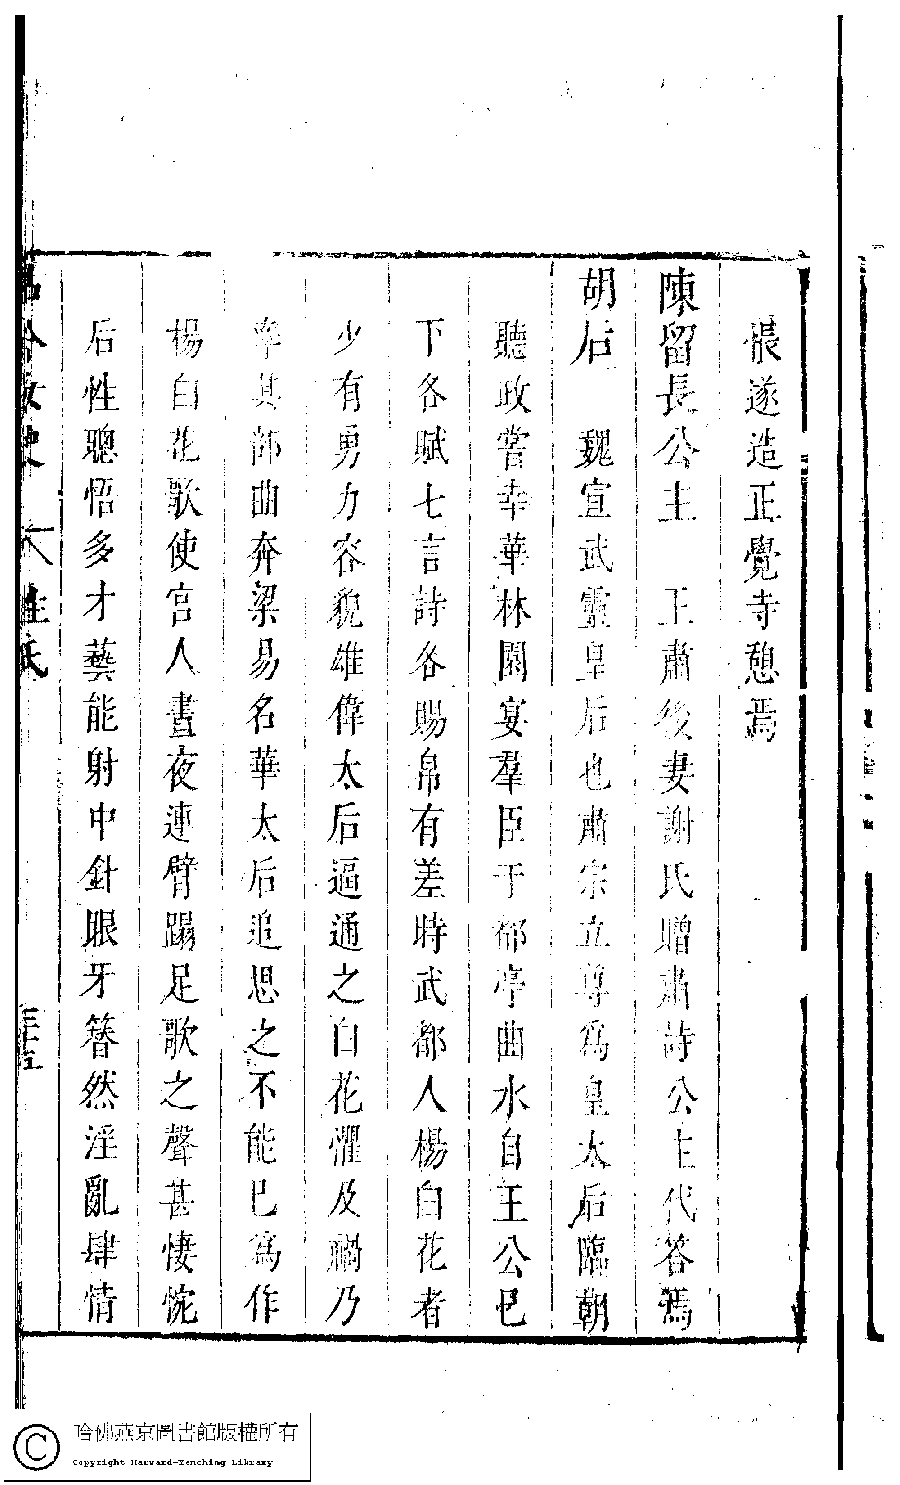 悵遂造正覺寺憩焉
陳留長公主　王肅後妻謝氏贈肅詩公主代答焉
胡后　魏宣武靈皇后也肅宗立尊爲皇太后臨朝
聽政嘗幸華林園宴羣臣于都亭曲水自王公已
下各賦七言詩各賜帛有差時武都人楊白花者
少有勇力容貌雄偉太后逼通之白花懼及禍乃
率其部曲奔梁易名華太后追思之不能已爲作
楊白花歌使宮人晝夜連臂蹋足歌之聲甚悽惋
后性聰悟多才藝能射中針眼牙簪然淫亂肆情
女史　姓氏　三十五
哈佛燕京圖書館版權所有
Copyright Harvard-Yenching Library